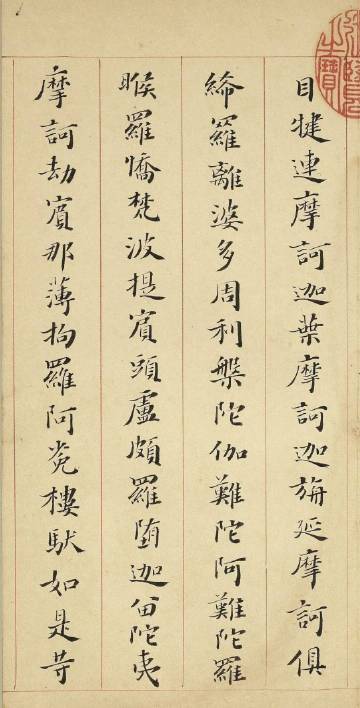 目犍連摩訶迦葉摩訶迦旃延摩訶俱
絺羅離婆多周利槃陀伽難陀阿難陀羅
睺羅憍梵波提賔頭盧頗羅墮迦留陀夷
摩訶劫賔那薄拘羅阿㝹樓馱如是等